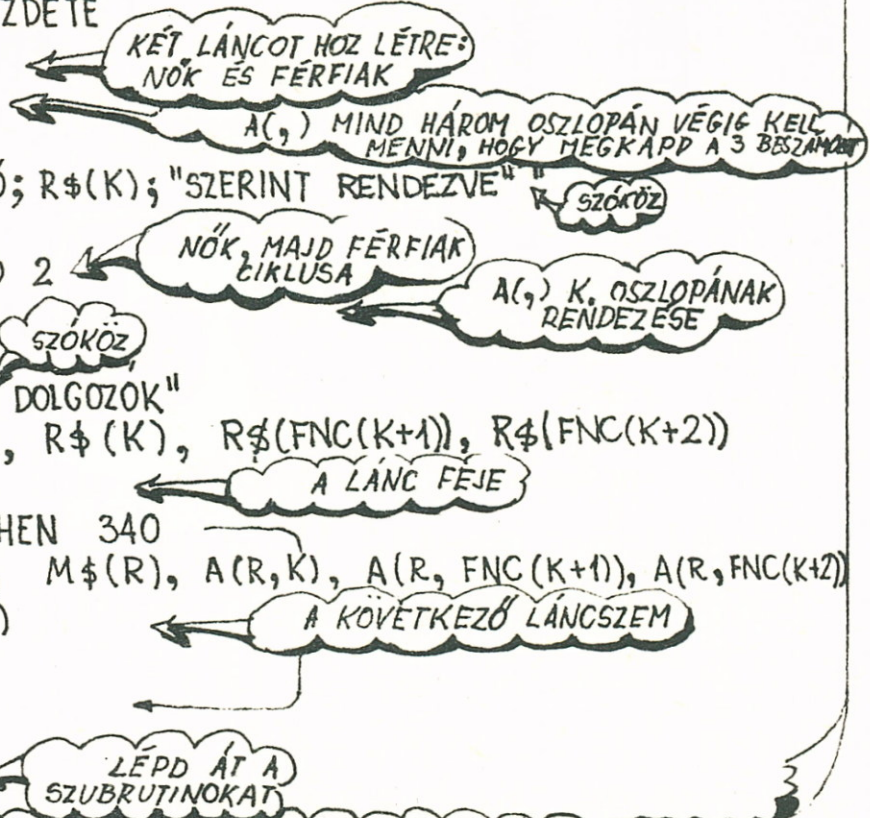 ZDETE
KÉT LÁNCOT HOZ LÉTRE:
NŐK ÉS FÉRFIAK
A(,) MIND HÁROM OSZLOPÁN VÉGIG KELL
MENNI, HOGY MEGKAPD A 3 BESZÁMOLÓT
; R$(K); "SZERINT RENDEZVE" "
SZÓKÖZ
NŐK, MAJD FÉRFIAK
CIKLUSA
2
A(,) K. OSZLOPÁNAK
RENDEZÉSE
SZÓKÖZ
DOLGOZÓK"
, R$(K), R$(FNC(K+1)), R$(FNC(K+2))
A LÁNC FEJE
HEN 340
M$(R), A(R,K), A(R, FNC(K+1)), A(R,FNC(K+2))
)
A KÖVETKEZŐ LÁNCSZEM
LÉPD ÁT A
SZUBRUTINOKAT